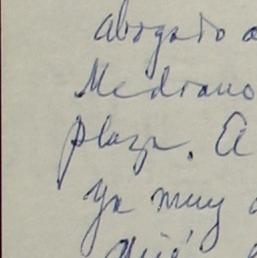 abogado
Medrano
plaza. El
ya muy